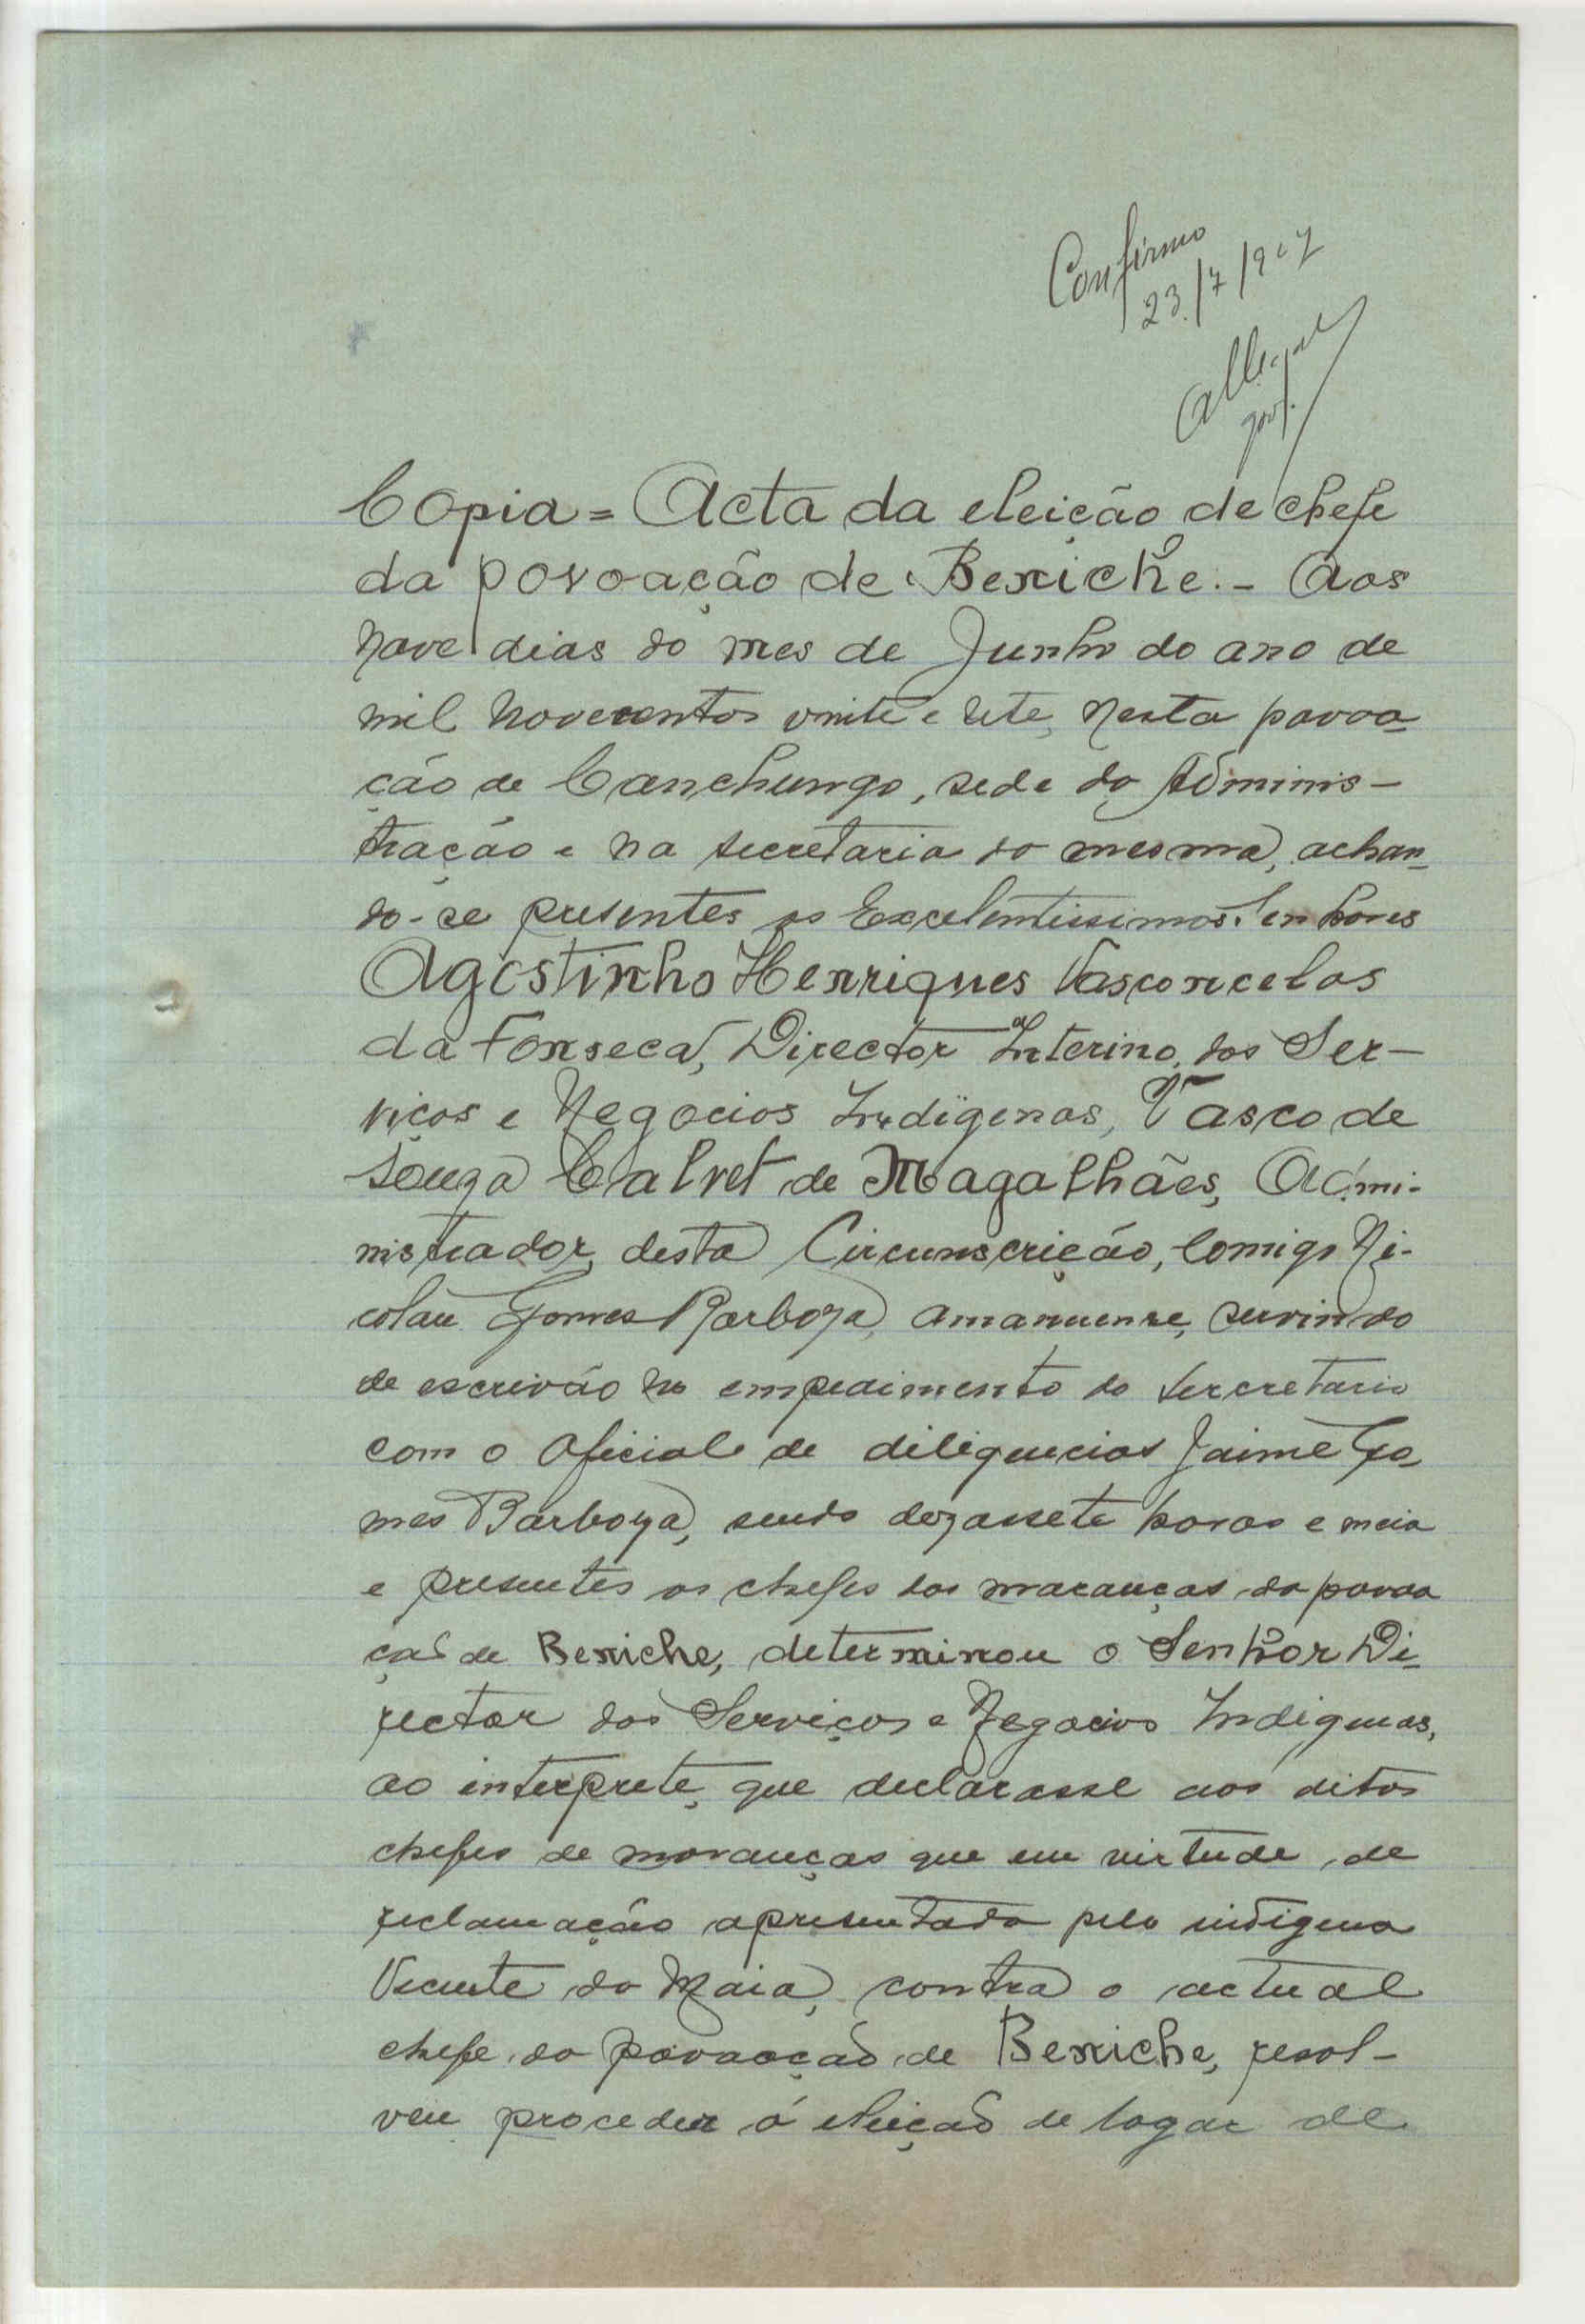 Confirmo
23/7/927
gov.
Copia = Acta da eleição de chefe
da povoação de Beniche. - Aos
nove dias do mes de Junho do ano de
mil novecentos vinte e sete, nesta povoa-
ção de Canchungo, sede da Adminis-
tração e na secretaria da mesma, achan-
do-se presentes os Excelentissimos Senhores
Agostinho Henriques Vasconcelos
da Fonseca, Director Interino dos Ser-
viços e Negocios Indigenas, Vasco de
Souza Calvet de Magalhães, Admi-
nistrador desta Circunscrição, comigo Ni-
colau Gomes Barboza, amanuense, servindo
de escrivão no empedimento do secretario
com o oficial de diligencias Jaime Go-
mes Barboza, sendo dezassete horas e meia
e presentes os chefes das moranças da povoa
ção de Beniche, determinou o Senhor Di-
rector dos Serviços e Negocios Indigenas,
ao interprete que declarasse aos ditos
chefes de moranças que em virtude de
reclamação apresentada pelo indigena
Vicente da Maia, contra o actual
chefe da povoação de Beniche, resol-
veu proceder á eleição de logar de